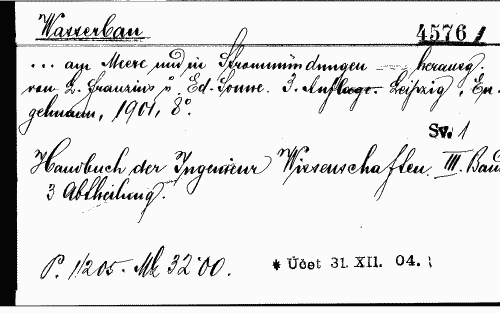 Wasserbau 4576/
... am Meere und in Strommündungen herausg.
von L. Franzius u. Ed. Sonne. 3. Auflage. Leipzig, En-
gelmann, 1901, 8°.
Sv. 1
Handbuch der Ingenieur Wissenschaften. III. Band
3 Abtheilung.
P. 1/205. Mk 32.00. * Účet 31. XII. 04.